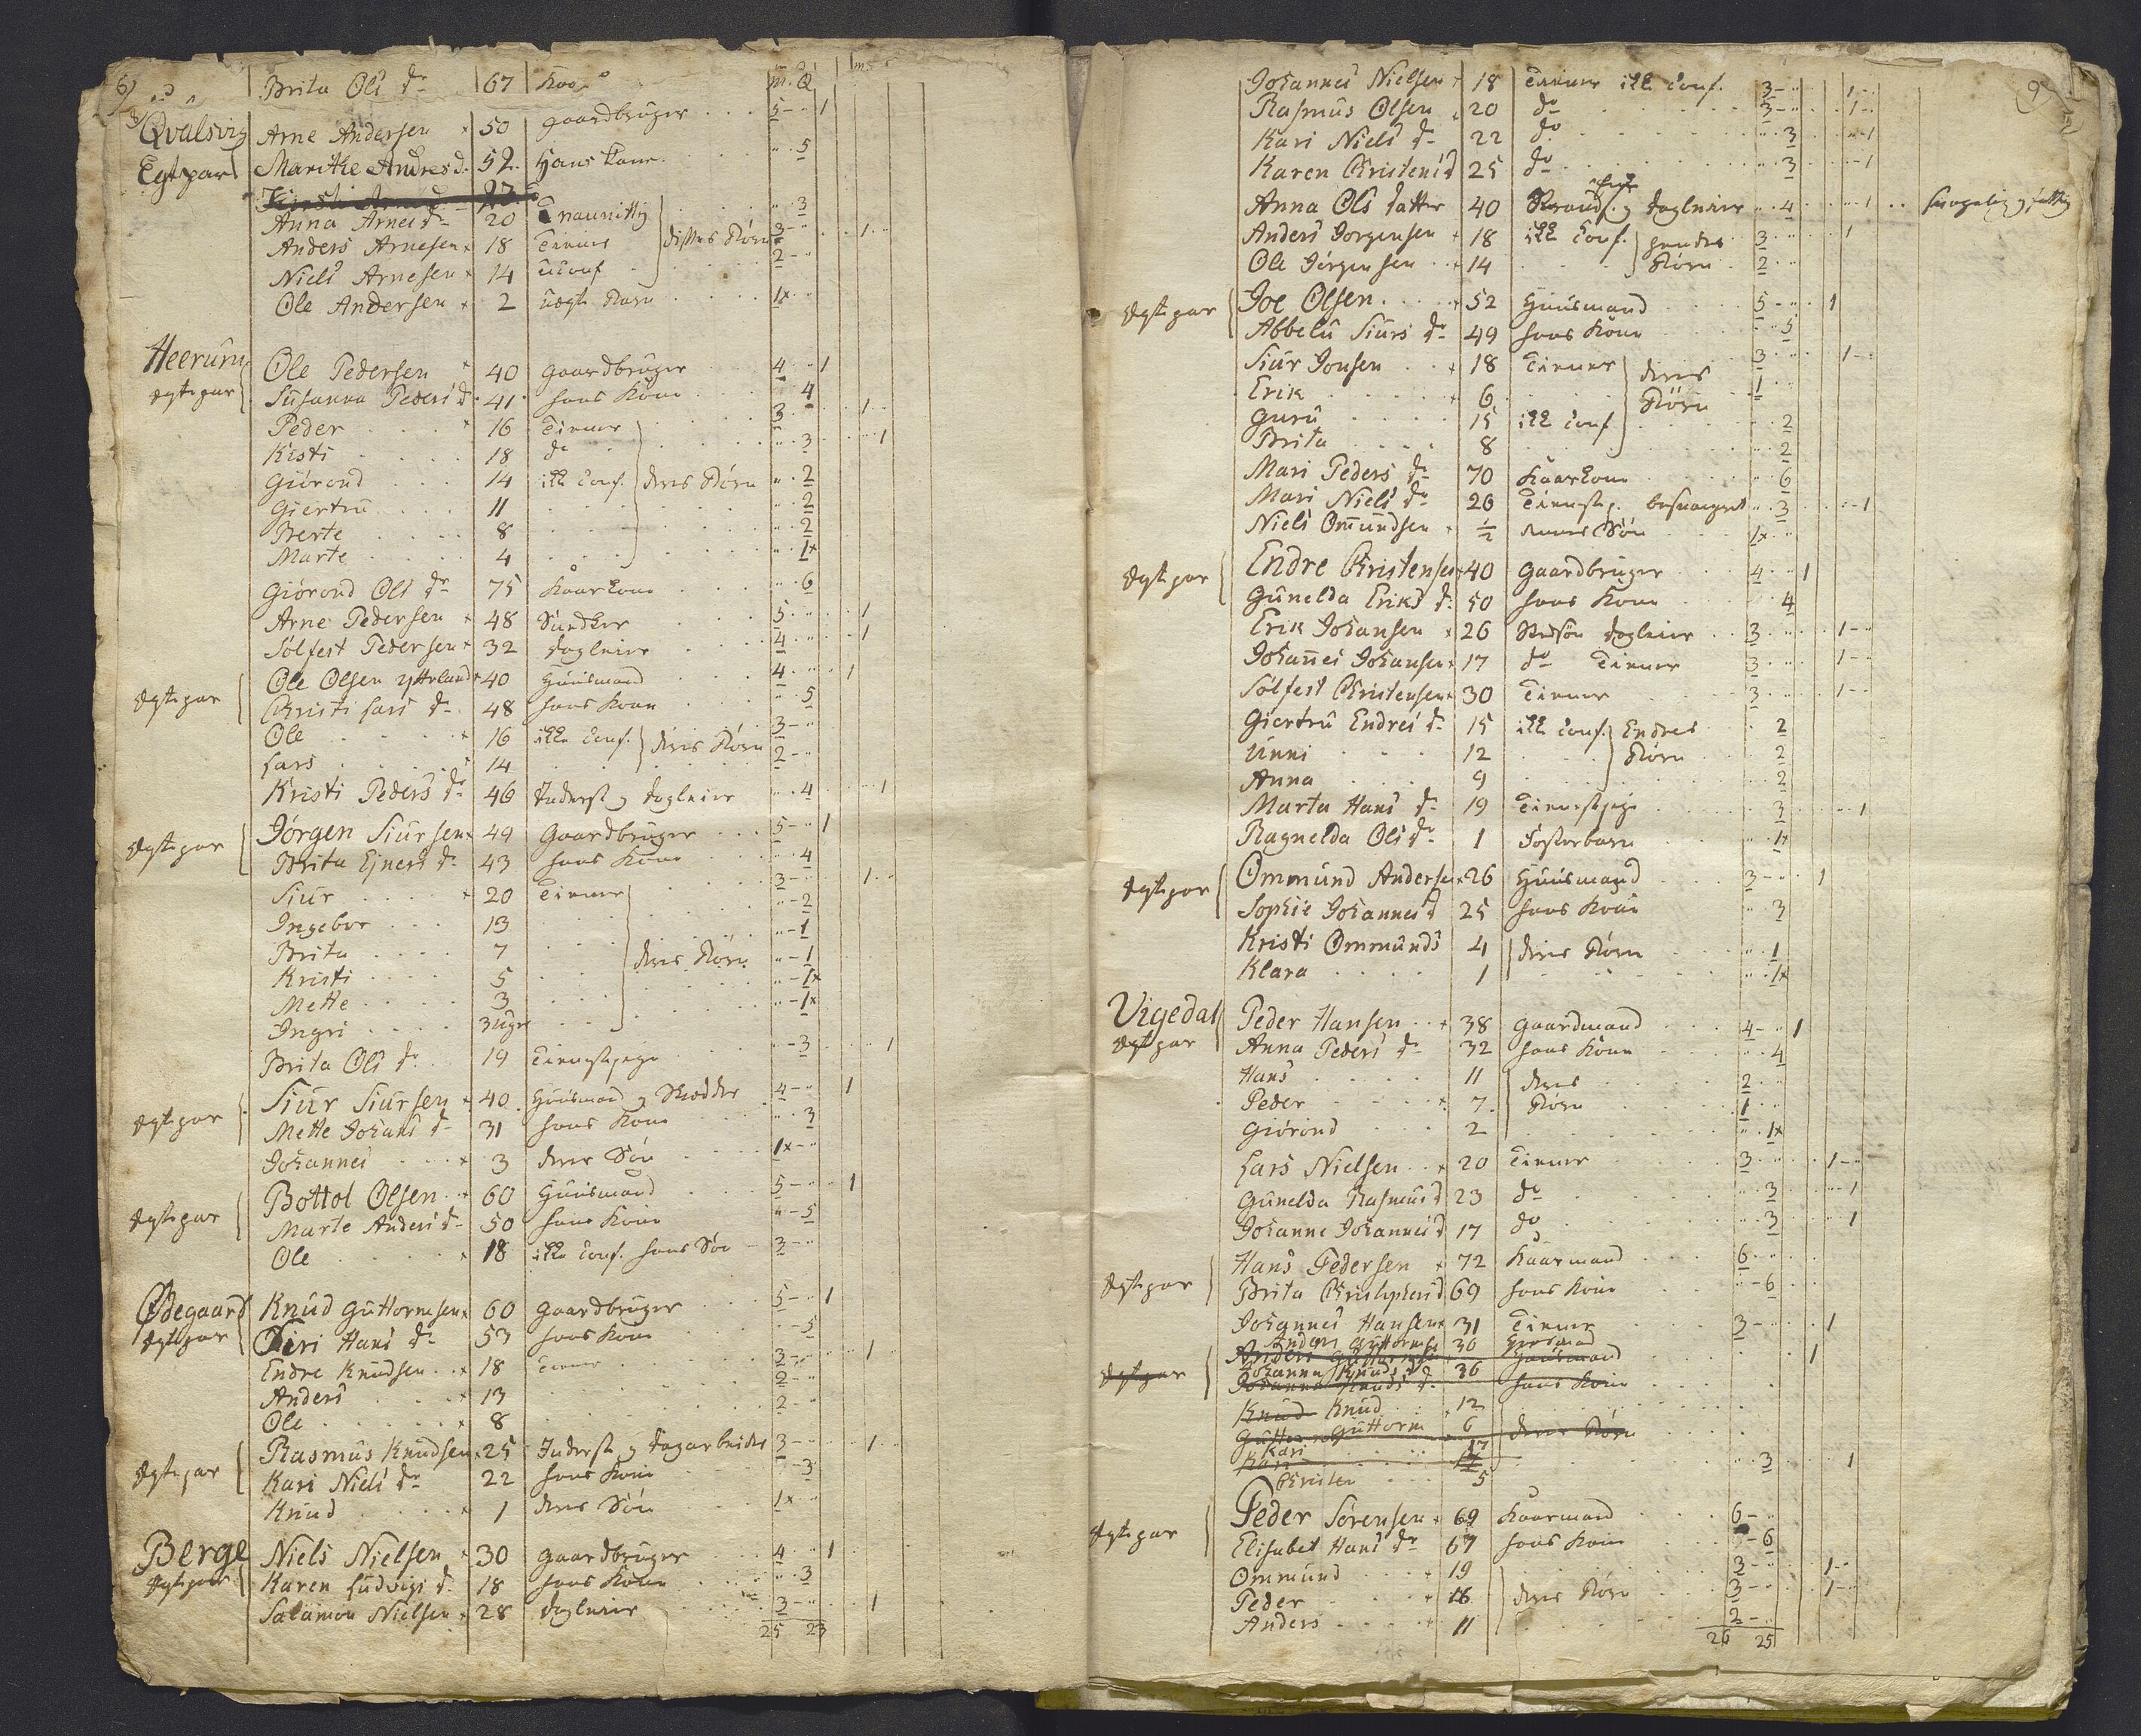 8)
" " Brita Ols dr 67 Kaar m. Q ms
Qvalsvig Arne Andersen + 50 gaardbruger 5 - " 1
Egtpar Marithe Andres d. 52 Hans kone " 5
23
Anna Arnes dr 20 " 3
Anders Arnesen + 18 Tiener disses Børn 3 - " 1
Niels Arnesen + 14 uconf 2 - "
Ole Andersen + 2 uægte Barn 1x
Heerum Ole Pedersen + 40 gaardbruger 4 " 1
Egtepar Susanna Peders d. 41 hans Kone 4
Peder + 16 Tiener 3 1
Kisti 18 do " 3 1
Giørond 14 ikke Conf. deres Børn " 2
Giertru 11 " 2
Berte 8 " 2
Marte 4 " 1x
Giørond Ols dr 75 Kaarkone " 6
Arne Pedersen + 48 5 " 1
Sølfest Pedersen + 32 dagleier 4 " 1
Ole Olsen ytterland + 40 Huusmand 4 " 1
Egtepar Christi Lars dr 48 hans Kone " 5
Ole + 16 ikke Conf. deres Børn 3 - "
Lars + 14 2 - "
Kristi Peders dr 46 Inderst og dagleier " 4 1
Egtepar Jørgen Siursen + 49 Gaardbruger 5 - " 1
Brita Ejners dr 43 hans Kone " 4
Siur + 20 Tiener 3 - " 1
Ingebor 13 " - 2
Brita 7 " - 1
Kristi 5 deres Børn " - 1
Mette 3 " - 1x
Ingri 3 uger " - 1x
Brita Ols dr 19 Tienestepige " - 3 1
Egtepar Siur Siursen + 40 Huusmand og Skredder 4 - " 1
Mette Johans dr 31 hans Kone " 3
Johannes + 3 deres Søn 1x - "
Egtepar Bottol Olsen + 60 Huusmand 5 - " 1
Marte Anders dr 50 hans Kone " - 5
Ole + 18 ikke Conf. hans Søn 3 - "
Ødegaard Knud Guttormsen + 60 gaardbruger 5 - " 1
Egtepar Siri Hans dr 53 hans Kone " 5
Endre Knudsen + 18 Tiener 3 - " 1
Anders + 13 2 - "
Ole + 8 2 - "
Egtepar Rasmus Knudsen + 25 Inderst og dagarbeider 3 - " 1
Kari Niels dr 22 hans Kone " 3
Knud + 1 deres Søn 1x "
Berge Niels Nielsen + 30 gaardbruger 4 " 1
Egtepar Karen Ludvigs d. 18 hans Kone " 3
Salamon Nielsen + 28 dagleier 3 - " 1
25 23
9
Johannes Nielsen + 18 Tiener ikke Conf. 3 - " 1 - "
Rasmus Olsen + 20 do 3 - " 1 - "
Kari Niels dr 22 do " 3 " 1
Karen Christens d 25 do " 3 " 1
Anna Ols datter 40 og dagleier " 4 " 1 og fattig
Anders Jørgensen + 18 ikke Conf. hendes 3 " 1
Ole Jørgensen + 14 Børn 2 "
Egtepar Joe Olsen + 52 Huusmand 5 - " 1
Abbelu Siurs dr 49 hans Kone " 5
Siur Jonsen + 18 Tiener deres 3 " 1 - "
Erik + 6 Børn 1 "
Guru 15 ikke Conf " 2
Brita 8 " 2
Mari Peders dr 70 Kaarkone " 6
Mari Niels dr 26 besvangret " 3 1
Niels Ommundsen + 1/2 hendes Søn 1x "
Egtepar Endre Christensen + 40 Gaardbruger 4 " 1
Gunelda Eriks dr 50 hans Kone " 4
Erik Johansen + 26 Stedsøn dagleier 3 " 1 - "
Johannes Johansen + 17 do Tiener 3 " 1 - "
Sølfest Christensen + 30 Tiener 3 " 1 - "
Giertru Endres dr 15 ikke Conf. Endres 2
Unni 12 Børn 2
Anna 9 " 2
Marta Hans dr 19 Tienestepige 3 " 1
Ragnelda Ols dr 1 Fosterbarn " 1x
Egtepar Ommund Andersen + 26 Huusmand 3 - " 1
Sophie Johannes d 25 hans Kone " 3
Kristi Ommunds 4 deres Børn " 1
Klara 1 " 1x
Vigedal Peder Hansen + 38 gaardmand 4 - " 1
Egtepar Anna Peders dr 32 hans Kone " 4
Hans 11 deres 2 "
Peder + 7 Børn 1 "
Giørond 2 " 1x
Lars Nielsen + 20 Tiener 3 " 1 - "
Gunelda Rasmus d 23 do " 3 " 1
Johanne Johannes d 17 do " 3 " 1
Egtepar Hans Pedersen + 72 Kaarmand 6 "
Brita Christophers d 69 hans Kone " - 6
Johannes Hansen + 31 Tiener 3 - " 1
Anders Guttormsen 36
Egtepar Anders Guttormsen Huusmand 1
Johanna Knuds d 36
Johanna Knuds dr hans Kone
Knud Knud 12
Guttorm Guttorm 6 deres Børn
Kari 17
Kari 17 3 1
Christen 5
Egtepar Peder Sørensen + 69 Kaarmand 6 - "
Elisabet Hans dr 67 hans Kone " - 6
Ommund + 19 3 - " 1 - "
Peder + 16 deres Børn 3 - " 1 - "
Anders + 11 2 - "
26 25